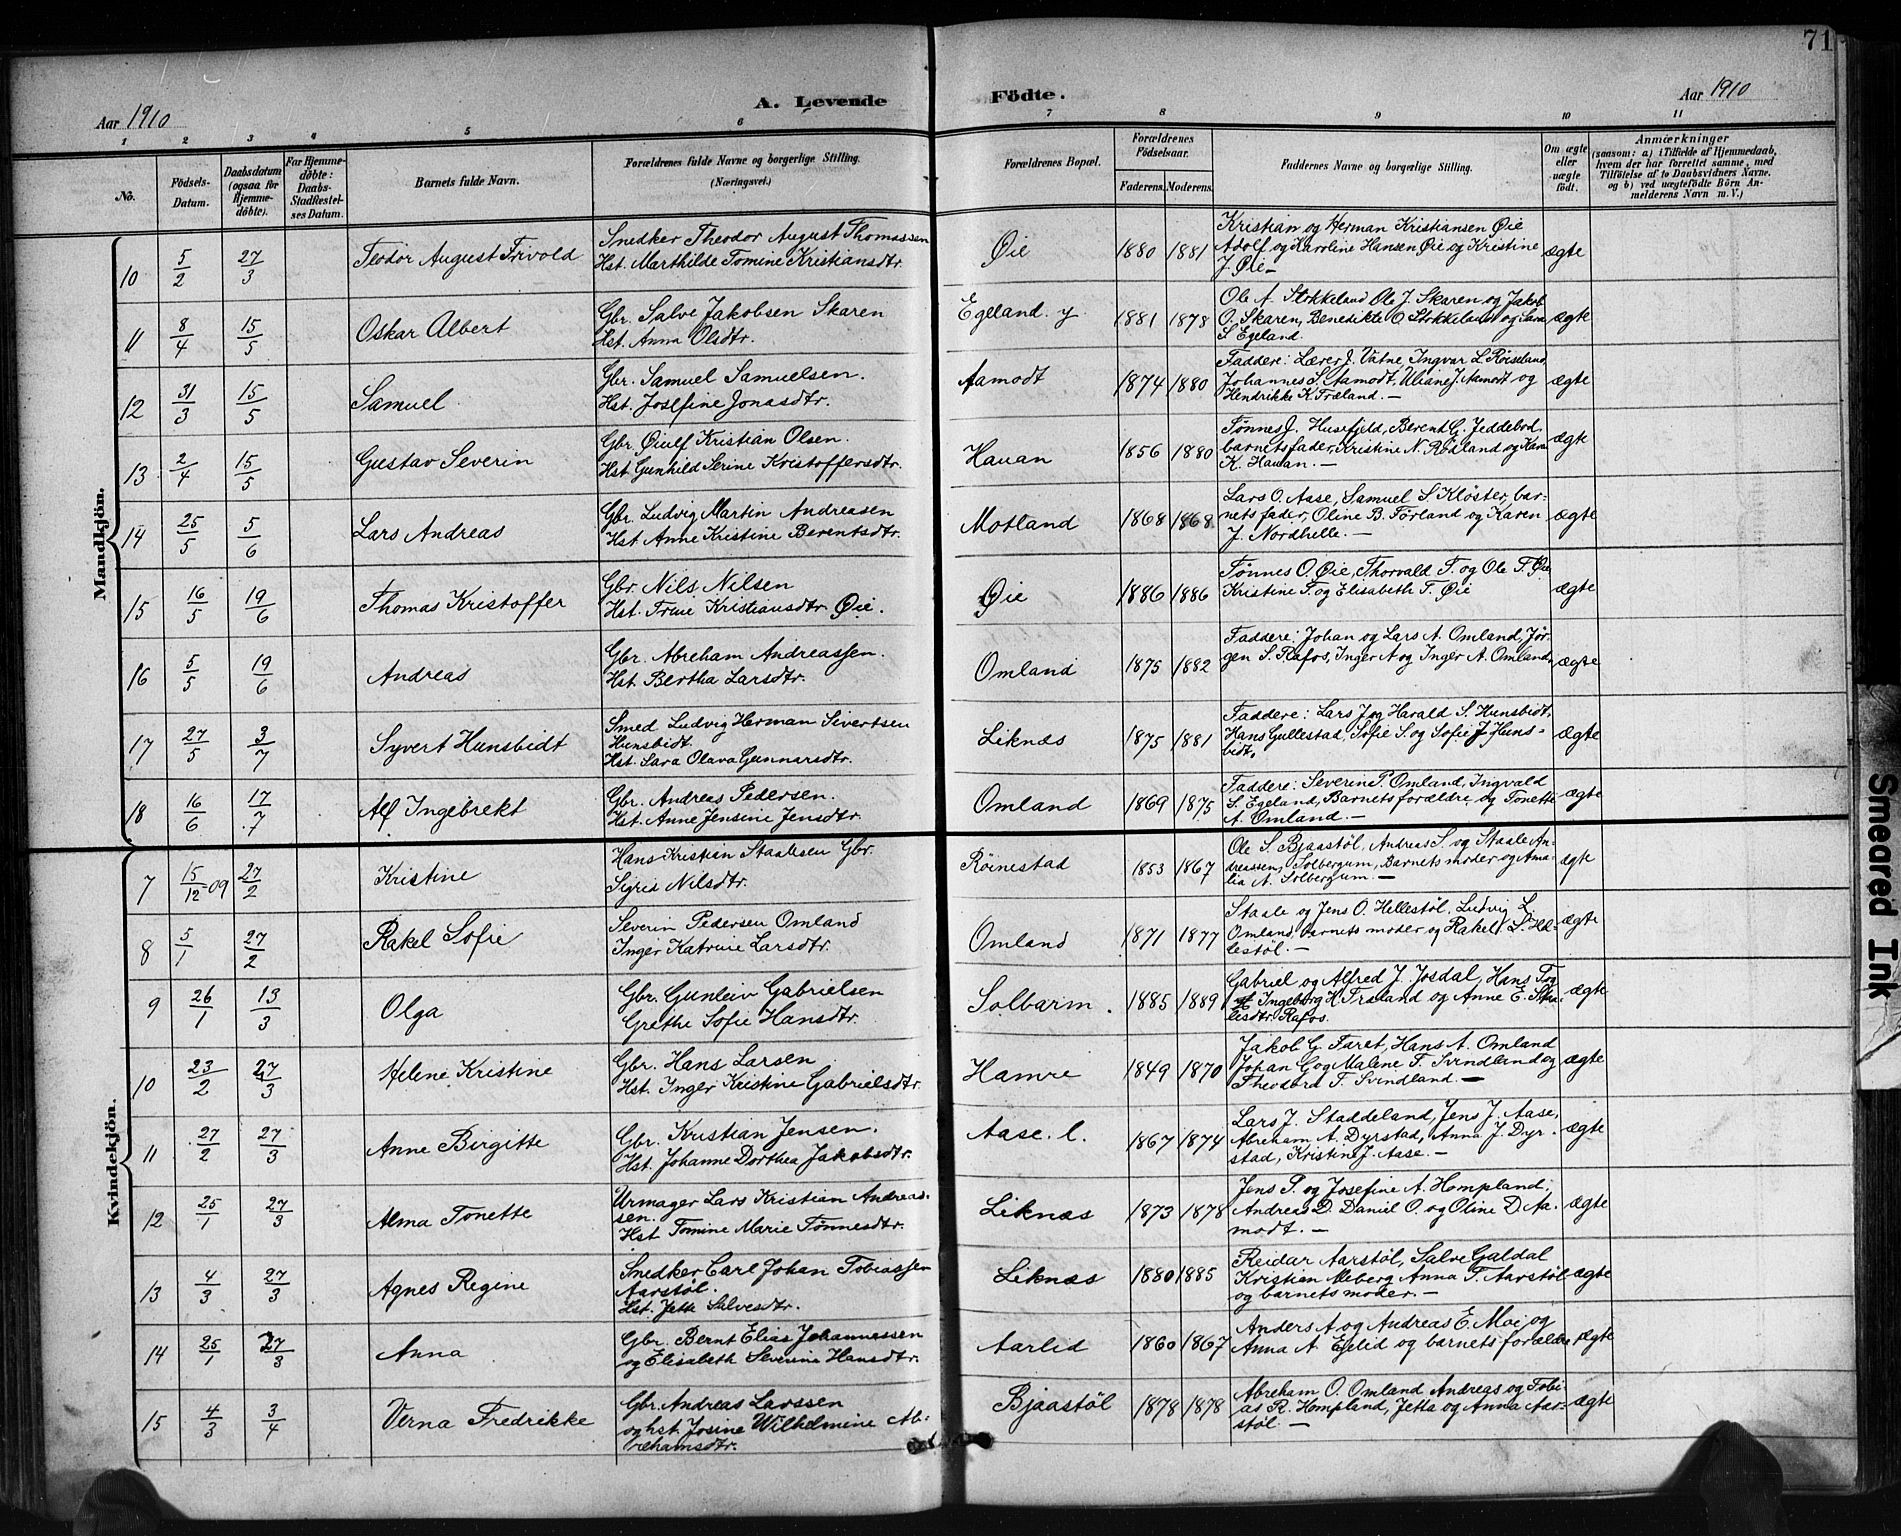 71
Aar 1910
A. Levende
Födte.
Aar 1910
1 2 3 4 5 6 7 8 9 10 11
No.
Födsels-
Datum.
Daabsdatum
(ogsaa for
Hjemme-
döbte).
For Hjemme-
döbte:
Daabs-
Stadfæstel-
ses Datum.
Barnets fulde Navn.
Forældrenes fulde Navne og borgerlige Stilling.
(Næringsvei.)
Forældrenes Bopæl.
Forældrenes
Födselsaar.
Faderens. Moderens.
Faddernes Navne og borgerlige Stilling.
Om ægte
eller
uægte
födt.
Anmærkninger
(saasom: a) i Tilfælde af Hjemmedaab,
hvem der har forrettet samme, med
Tilföielse af to Daabsvidners Navne.
og b) ved uægtefödte Börn An-
melderens Navn m. V.)
Mandkjön.
10 5/2 27/3 Teodor August Trivold
Snedker Theodor August Thomassen
Hst. Marthilde Tomine Kristiansdtr.
Øie 1880 1881
Kristian og Herman Kristiansen Øie
Adolf og Karoline Hansen Øie og Kristine
J. Øie —
ægte
11 8/4 15/5 Oskar Albert
Gbr. Salve Jakobsen Skaren
Hst. Anna Olsdtr.
Egeland. y. 1881 1878
Ole A. Stokkeland Ole J. Skaren og Jakob
O. Skaren, Benedikte O Stokkeland og Sara
S Egeland.
ægte
12 31/3 15/5 Samuel
Gbr. Samuel Samuelsen.
Hst. Josefine Jonasdtr.
Aamodt 1874 1880
Faddere: Lærer J. Vatne, Ingvar L. Røiseland
Johannes S. Aamodt, Uliane J. Aamodt og
Hendrikke K. Fræland. —
ægte
13 2/4 15/5 Gustav Severin
Gbr. Øiulf Kristian Olsen.
Hst. Gunhild Serine Kristoffersdtr.
Hauan 1856 1880
Tønnes J. Husefjeld, Berent G. Jeddebod
barnets fader, Kristine N. Rødland og Karen
K. Hauan. —
ægte
14 25/5 5/6 Lars Andreas
Gbr. Ludvig Martin Andreasen
Hst. Anne Kristine Berentsdtr.
Motland 1868 1868
Lars O. Aase, Samuel S Kløster, bar-
nets fader, Oline B. Førland og Karen
J. Nordhelle. —
ægte
15 16/5 19/6 Thomas Kristoffer
Gbr. Nils Nilsen
Hst. Trine Kristiansdtr Øie.
Øie 1886 1886
Tønnes O. Øie, Thorvald T. og Ole T. Øie
Kristine T. og Elisabeth T. Øie
ægte
16 5/5 19/6 Andreas
Gbr. Abreham Andreassen.
Hst. Bertha Larsdtr.
Omland 1875 1882
Faddere: Johan og Lars A. Omland, Jør-
gen S. Rafos, Inger A og Inger A. Omland,
ægte
17 27/5 3/7 Syvert Hunsbidt
Smed Ludvig Herman Sivertsen
Hunsbidt.
Hst. Sara Olava Gunnarsdtr.
Liknæs 1875 1881
Faddere: Lars J og Harald S. Hunsbidt,
Hans Gullestad, Sofie S. og Sofie J. Huns-
bidt,
ægte
18 16/6 17/7 Alf Ingebrekt
Gbr. Andreas Pedersen.
Hst. Anne Jensine Jensdtr.
Omland 1869 1875
Faddere: Severin P. Omland, Ingvald
S. Egeland, Barnets forældre og Tonette
A. Omland. —
ægte
Kvindekjön.
7 15/12-09 27/2 Kristine
Hans Kristian Staalesen Gbr.
Sigrid Nilsdtr.
Røinestad 1853 1867
Ole S. Bjaastøl, Andreas S. og Staale An-
dreassen, Solbergum, Barnets moder og Ama-
lia A. Solbergum. —
ægte
8 5/1 27/2 Rakel Sofie
Severin Pedersen Omland
Inger Katrine Larsdtr.
Omland 1871 1877
Staale og Jens O. Hellestøl, Ludvig L.
Omland, barnets moder og Rakel L. Hel-
lestøl. —
ægte
9 26/1 13/3 Olga
Gbr. Gunleiv Gabrielsen
Grethe Sofie Hansdtr.
Solbarm. 1885 1889
Gabriel og Alfred J. Josdal, Hans
Ingeborg H. Fræland og Anne E. Staa-
lesdtr. Rafos.
ægte
10 23/2 27/3 Helene Kristine
Gbr. Hans Larsen
Hst. Inger Kristine Gabrielsdtr.
Hamre 1849 1870
Jakob G. Faret, Hans A. Omland
Johan G. og Malene T. Svindland og
Theodora T. Svindland. —
ægte
11 27/2 27/3 Anne Birgitte
Gbr. Kristian Jensen.
Hst. Johanne Dorthea Jakobsdtr.
Aase. l. 1867 1874
Lars J. Staddeland, Jens J. Aase,
Abreham A. Dyrstad, Anna J. Dyr-
stad, Kristin J. Aase. —
ægte
12 25/1 27/3 Alma Tonette
Urmager Lars Kristian Andreas-
sen.
Hst Tomine Marie Tønnesdtr.
Liknæs 1873 1878
Jens P. og Josefine A. Hompland,
Andreas D. Daniel O. og Oline D. Aa-
modt. —
ægte
13 4/3 27/3 Agnes Regine
Snedker Carl Johan Tobiassen
Aarstøl.
Hst. Jette Salvesdtr.
Liknæs 1880 1885
Reidar Aarstøl, Salve Galdal
Kristian Meberg Anna T. Aarstøl
og barnets moder. —
ægte
14 25/1 27/3 Anna
Gbr. Bernt Elias Johannessen
og Elisabeth Severine Hansdtr.
Aarlid 1860 1867
Anders A og Andreas E. Moi og
Anna A. Egelid og barnets forældre
ægte
15 4/3 3/4 Verna Fredrikke
Gbr. Andreas Larssen
og hst. Josine Wilhelmine Ab-
rehamsdtr.
Bjaastøl 1878 1878
Abreham O. Omland Andreas og Tobi-
as R. Hompland, Jetta og Anna Aar-
støl. —
ægte
Smeared Ink